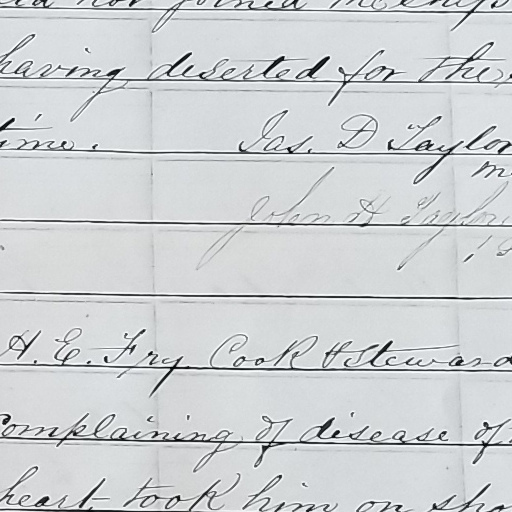 not joined the ship
having deserted for the
time. Jas. D Taylor
John H Taylor
H. E. Fry Cook & Steward
Complaining of disease of
heart took him on sho